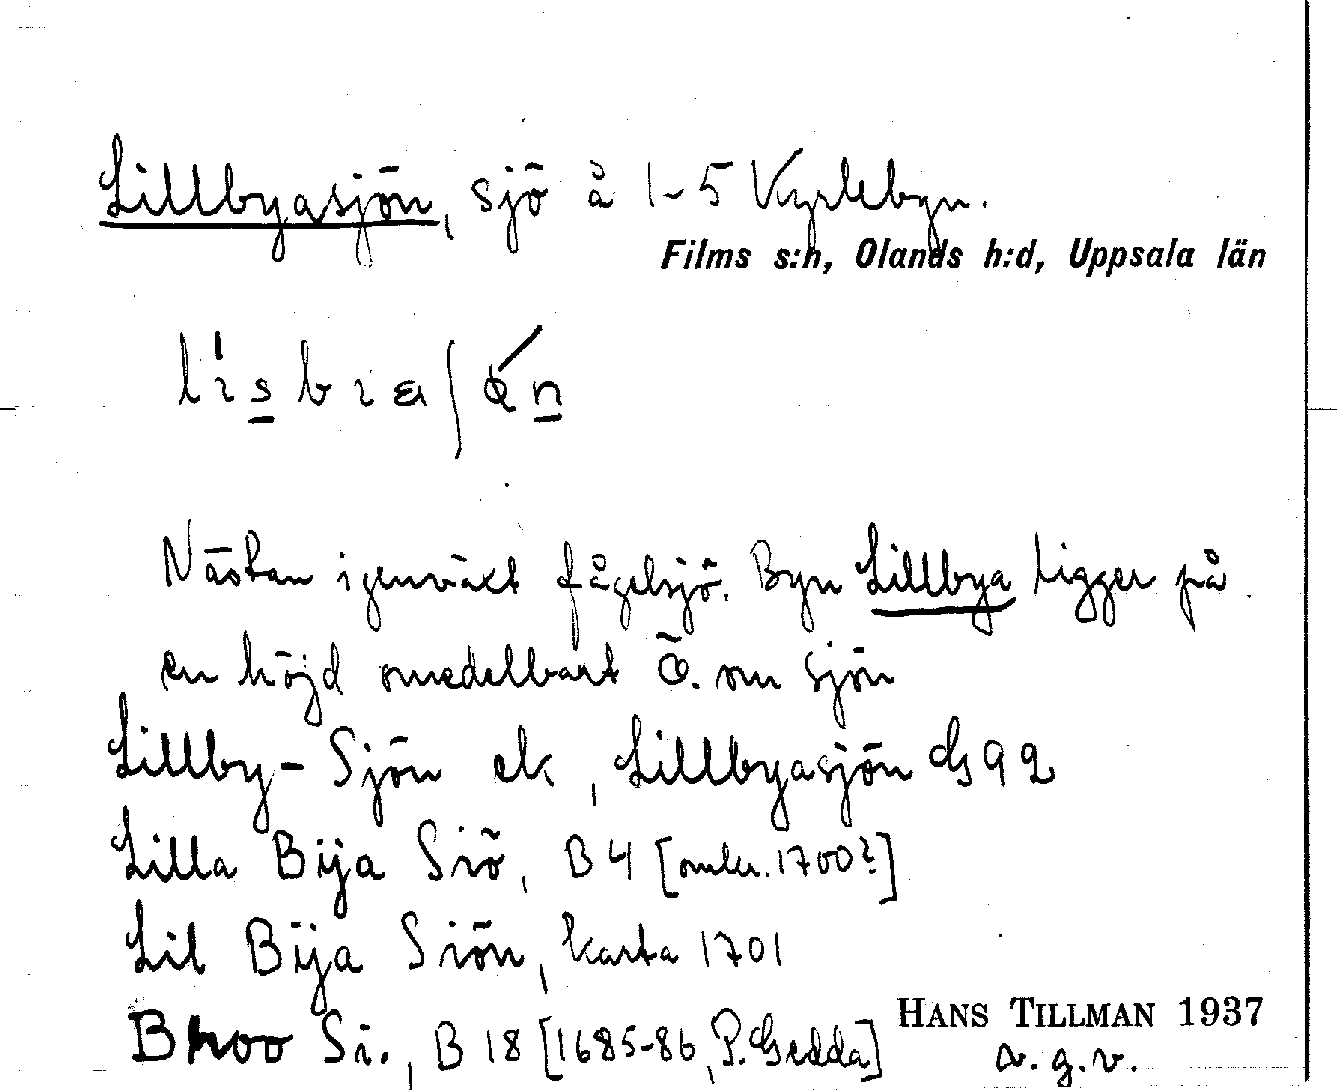 Lillbyasjön, sjö å 1-5 Kyrkbyn.
Films s:n, Olands h:d, Uppsala län
Nästan igenväxt fågelsjö. Byn Lillbya ligger på
en höjd omedelbart Ö. om sjön
Lillby-Sjön ek, Lillbyasjön GS 92
Lilla Bija Siö, B 4 [omkr. 1700?]
Lil Bija Siön, karta 1701
Broo Si., B 18 [1685-86, P. Gedda]
HANS TILLMAN 1937
a. g. v.